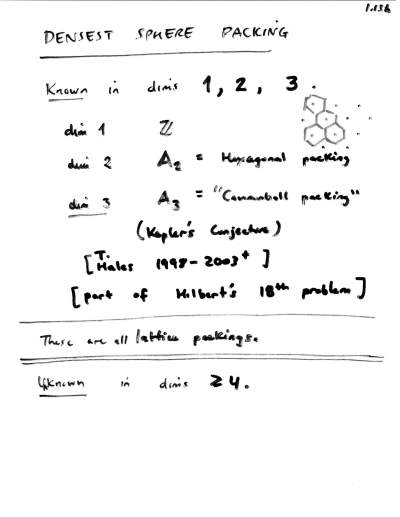 1.13k
DENSEST SPHERE PACKING
Known in dim's 1, 2, 3.
dim 1 ℤ
dim 2 A₂ = Hexagonal packing
dim 3 A₃ = "Cannonball packing"
(Kepler's Conjecture)
[T. Hales 1998-2003⁺]
[part of Hilbert's 18ᵗʰ problem]
These are all lattice packings.
Unknown in dim's ≥4.